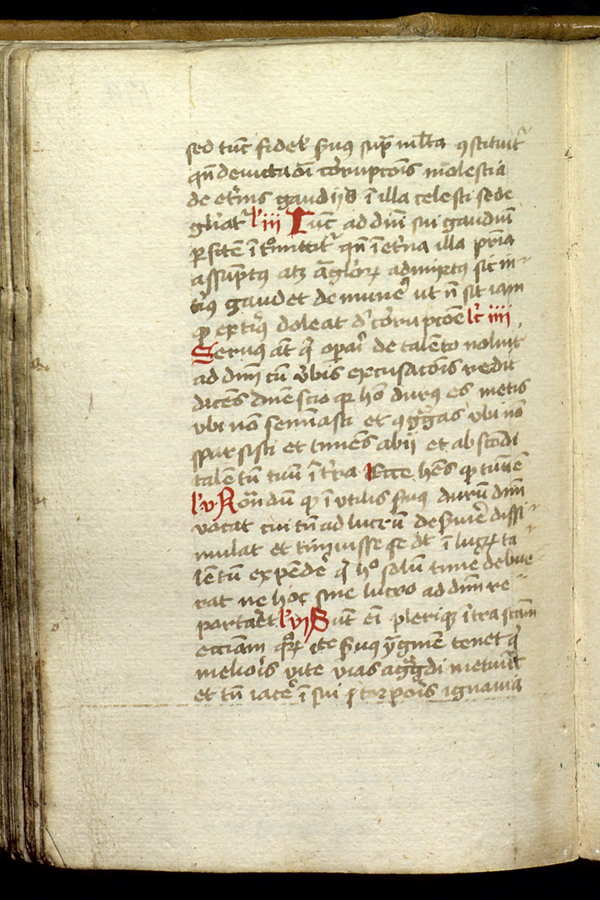 sed tūc fidel' s̄uus sup̄ m̄lta ꝯstituit᷑
qn̄ deuicta oī corrupcōis molestia
de et̄nis gaudijs ī illa celesti sede
gl'iat᷑ lc' iii Tūc ad dn̄i sui gaudiū
p̄fcē īt̄mittit᷑ qn̄ ī et̄na illa pr̄ia
assūptus atꝫ āglor̄ꝝ admixtus sic in
t̄ius gaudet de mune' ut n̄ sit iam
qꝫ ext̄ius doleat d' corrupcōe lc' iiii
Seruus aūt q' opari de talēto noluit
ad dn̄m cū v̄bis excusacōis redit
dicēs dn̄e scio qꝫ hō durus es metis
vbi non semīasti et ꝯgg̅as vbi nō
sparsisti et timens abij et abscōdi
talētū tuū ī t̄ra Ecce hēs qꝫ tuū ē
lc' v Notādū qꝫ īutilis s̄uus durū dn̄m
vocat cui tn̄ ad lucrū des̄uire dissi
mulat et timuisse se dīt ī lucrū ta
lētū expēde' q' h° solū time' debue
rat ne hoc sine lucro ad dn̄m re
portaret lc' vi Sūt em̄ pleriqꝫ īt̄ra scam̄
ecciam quoꝝ iste s̄uus ymagiēm tenet q'
melioris vite vias agg̅di metuūt
et tn̄ iace' ī sui torporis ignauia